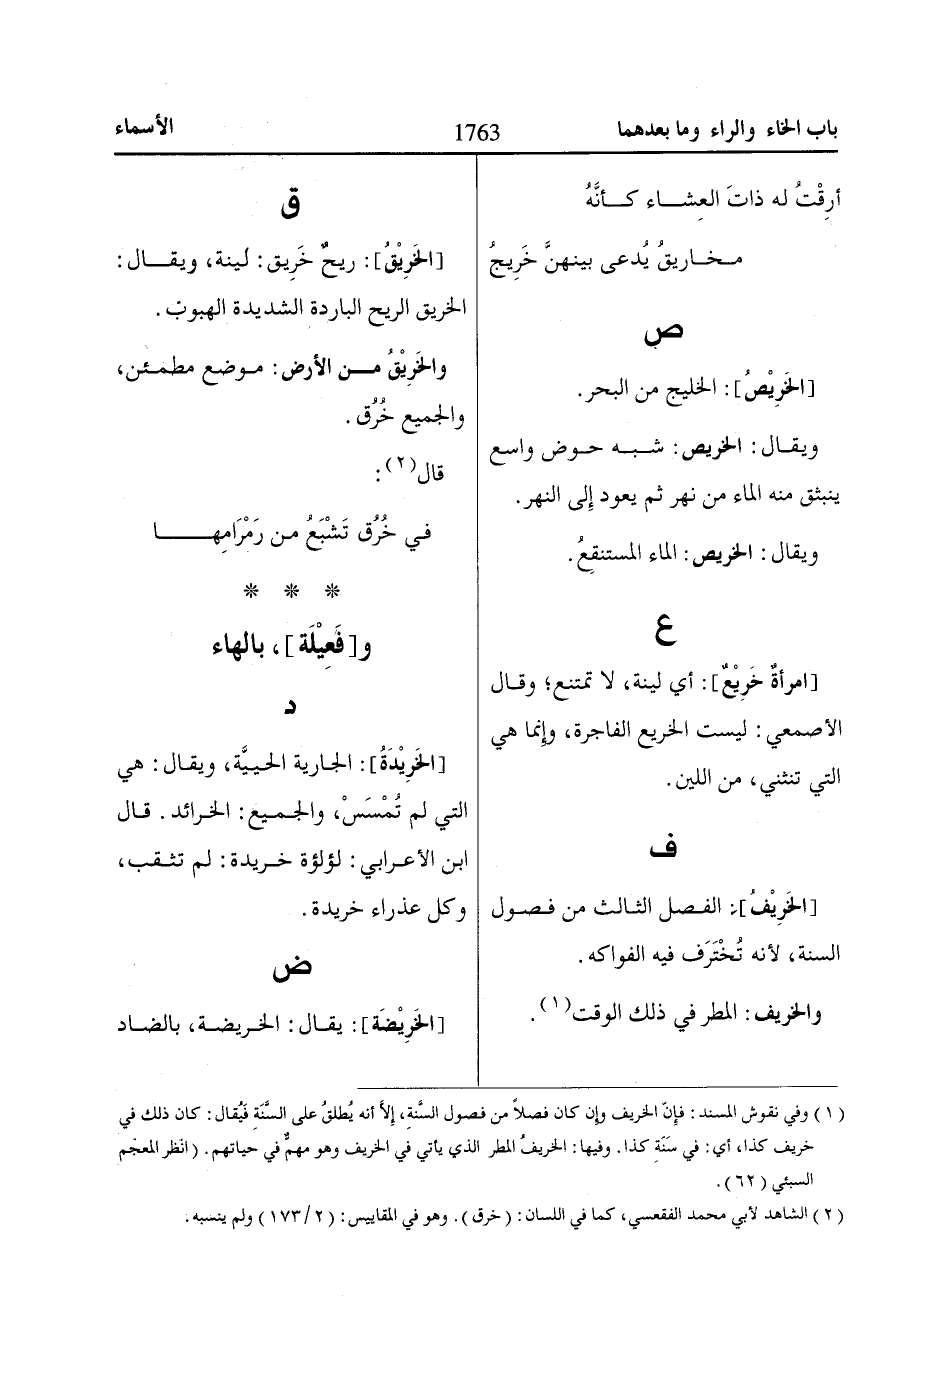 باب الخاء والراء وما بعدهما 1763 الأسماء
أرِقْتُ له ذاتَ العِشـــاء كــأنَّهُ
مـخـاريقُ يُدعى بينهنَّ خَرِيجُ
ص
[الخَرِيْصُ]: الخليج من البحر.
ويقـال: الخريص: شـبـه حـوض واسع
ينبثق منه الماء من نهر ثم يعود إلى النهر.
ويقال: الخريص: الماء المستنقِعُ.
ع
[امرأةٌ خَرِيْعٌ]: أي لينة، لا تمتنع؛ وقـال
الأصمعي: ليست الخريع الفاجرة، وإنما هي
التي تنثني، من اللين.
ف
[الخَرِيْفُ]: الفـصل الثـالث من فـصـول
السنة، لأنه تُخْتَرَف فيه الفواكه.
والخريف: المطر في ذلك الوقت(١).
ق
[الخَرِيْقُ]: ريحٌ خَرِيق: لينة، ويقــال:
الخريق الريح الباردة الشديدة الهبوبّ.
والخَرِيْقُ مــن الأرض: مـوضع مطمـئن،
والجميع خُرُق.
قال(٢):
فـي خُرُق تَشْبَعُ مـن رَمْرَامِهـــــا
* * *
و[فَعِيْلَة]، بالهاء
د
[الخَرِيْدَةُ]: الجـارية الحـييَّة، ويقـال: هي
التي لم تُمْسَسْ، والجـمـيع: الخـرائد. قـال
ابن الأعـرابي: لؤلؤة خـريدة: لم تثـقب،
وكل عذراء خريدة.
ض
[الخَرِيْضَة]: يقـال: الخـريضـة، بالضاد
(١) وفي نقوش المسند: فإنّ الخريف وإن كان فصلاً من فصول السَّنة، إلاَّ أنه يُطلقُ على السَّنَة فَيُقال: كان ذلك في
خريف كذا، أي: في سَنَة كذا. وفيها: الخريفُ المطر الذي يأتي في الخريف وهو مهمٌّ في حياتهم. (انظر المعجَم
السبئي (٦٢).
(٢) الشاهد لأبي محمد الفقعسي، كما في اللسان: (خرق). وهو في المقاييس: (١٧٣/٢) ولم ينسبه.